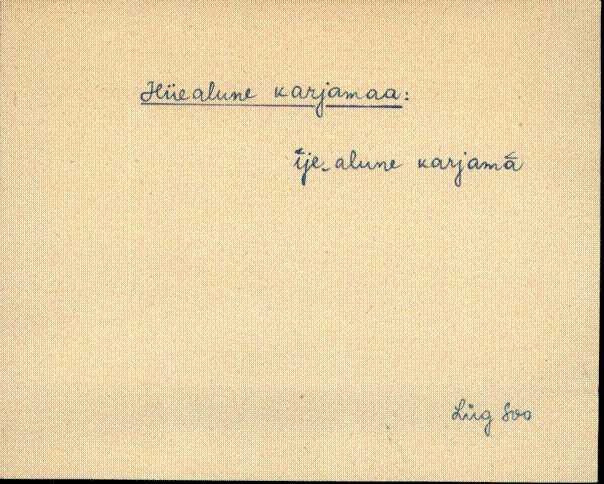 Hiiealune karjamaa:
īje‿alune karjamā
Lüg Soo